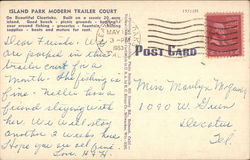 ISLAND PARK MODERN TRAILER COURT
On Beautiful Clearlake. Built on a scenic 20 acre
island. Good beach - picnic grounds - boating
year around fishing - groceries - fountain
supplies - boats and motors for rent.
POST CARD
MAY 18
3 - PM
1953
Dear Friends. We
are parked in this
trailer court for a
month. The fishing is
fine. Nellie has a
friend staying with
her. We will stay
another 3 weeks.
Hope you are all fine.
Love. H + H.
Miss Marilyn
1090 W. Green
Decatur
Ill.